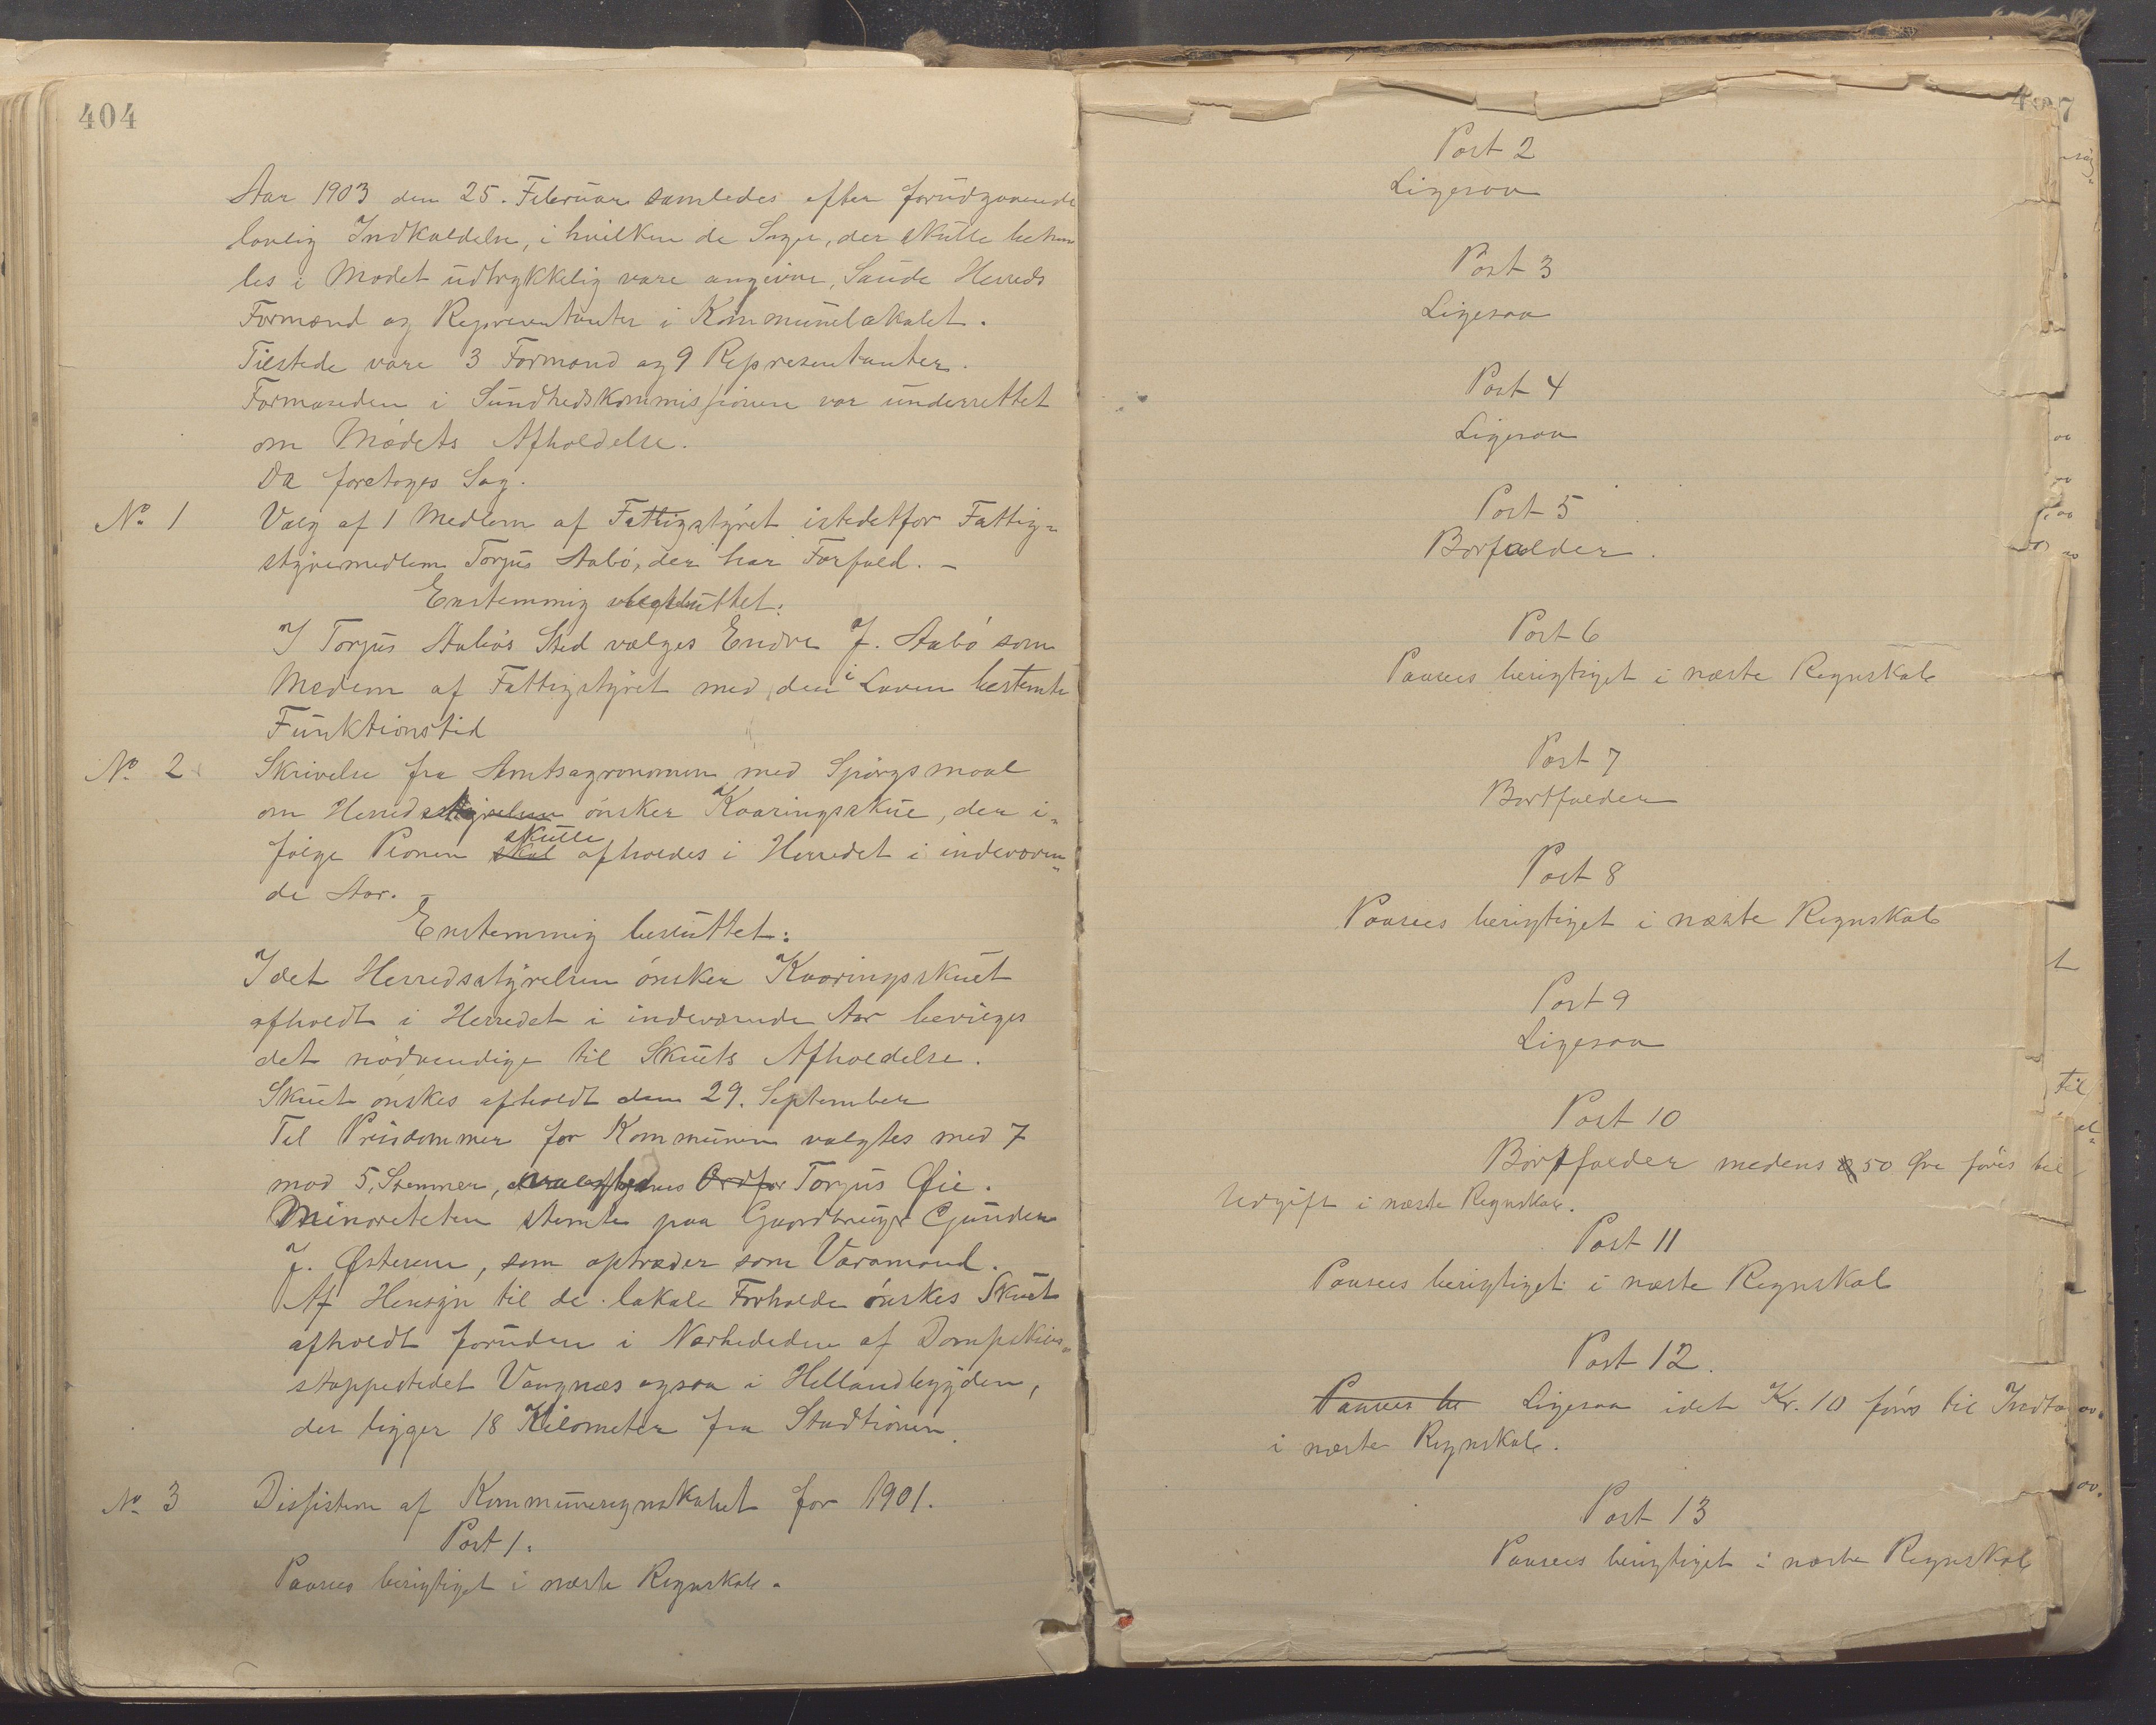 404
Aar 1903 den 25. Februar samledes efter forudgaaende
lovlig Indkaldelse, i hvilken de Sager, der skulle behan
les i Mødet udtrykkelig vare angivne, Saude Herreds
Formænd og Repræsentanter i Kommunelokalet.
Tilstede vare 3 Formænd og 9 Repræsentanter.
Formanden i Sundhedskommissionen var underrettet
om Mødets Afholdelse.
Da foretoges Sag.
No 1 Valg af 1 Medlem af Fattigstyret istedetfor Fattig-
styremedlem Torjus Aabø, der har Forfald. -
Enstemmig besluttet:
I Torjus Aabøs Sted vælges Endre J. Aabø som
Medem af Fattigstyret med den i Loven bestemte
Funktionstid
No 2 Skrivelse fra Amtsagronomen med Spørgsmaal
om Herredsstyrelsen ønsker Kaaringsskue, der i-
følge Planen skal skulle afholdes i Herredet i indeværen-
de Aar. -
Enstemmig besluttet:
Idet Herredsstyrelsen ønsker Kaaringsskuet
afholdt i Herredet i indeværende Aar bevilges
det nødvendige til Skuets Afholdelse.
Skuet ønskes afholdt den 29. September
Til Prisdommer for Kommunen valgtes med 7
mod 5, Stemmer, Ordfør Torjus Øie.
Minoreteten stemte paa Gaardbruger Gunder
J. Østerenn, som optræder som Varamand.
Af Hensyn til de lokale Forholde ønskes Skuet
afholdt foruden i Nærhededen af Dampskibs-
stoppestedet Vangnæs ogsaa i Hellandbygden,
der ligger 18 Kilometer fra Stadtionen.
No 3 Dissistion af Kommuneregnskabet for 1901.
Post 1.
Paasees berigtiget i næste Regnskab.
407
Post 2
Ligesaa
Post 3
Ligesaa
Post 4
Ligesaa
Post 5
Borfalder.
Post 6
Paasees berigtiget i næste Regnskab
Post 7
Bortfalder
Post 8
Paasees berigtiget i næste Regnskab
Post 9
Ligesaa
Post 10
Bortfalder medens 50 Øre føres til
Udgift i næste Regnskab.
Post 11
Paasees berigtiget i næste Regnskab
Post 12.
Paasees be Ligesaa idet Kr. 10 føres til Indtæ
i næste Regnskab.
Post 13
Paasees berigtiget i næste Regnskab